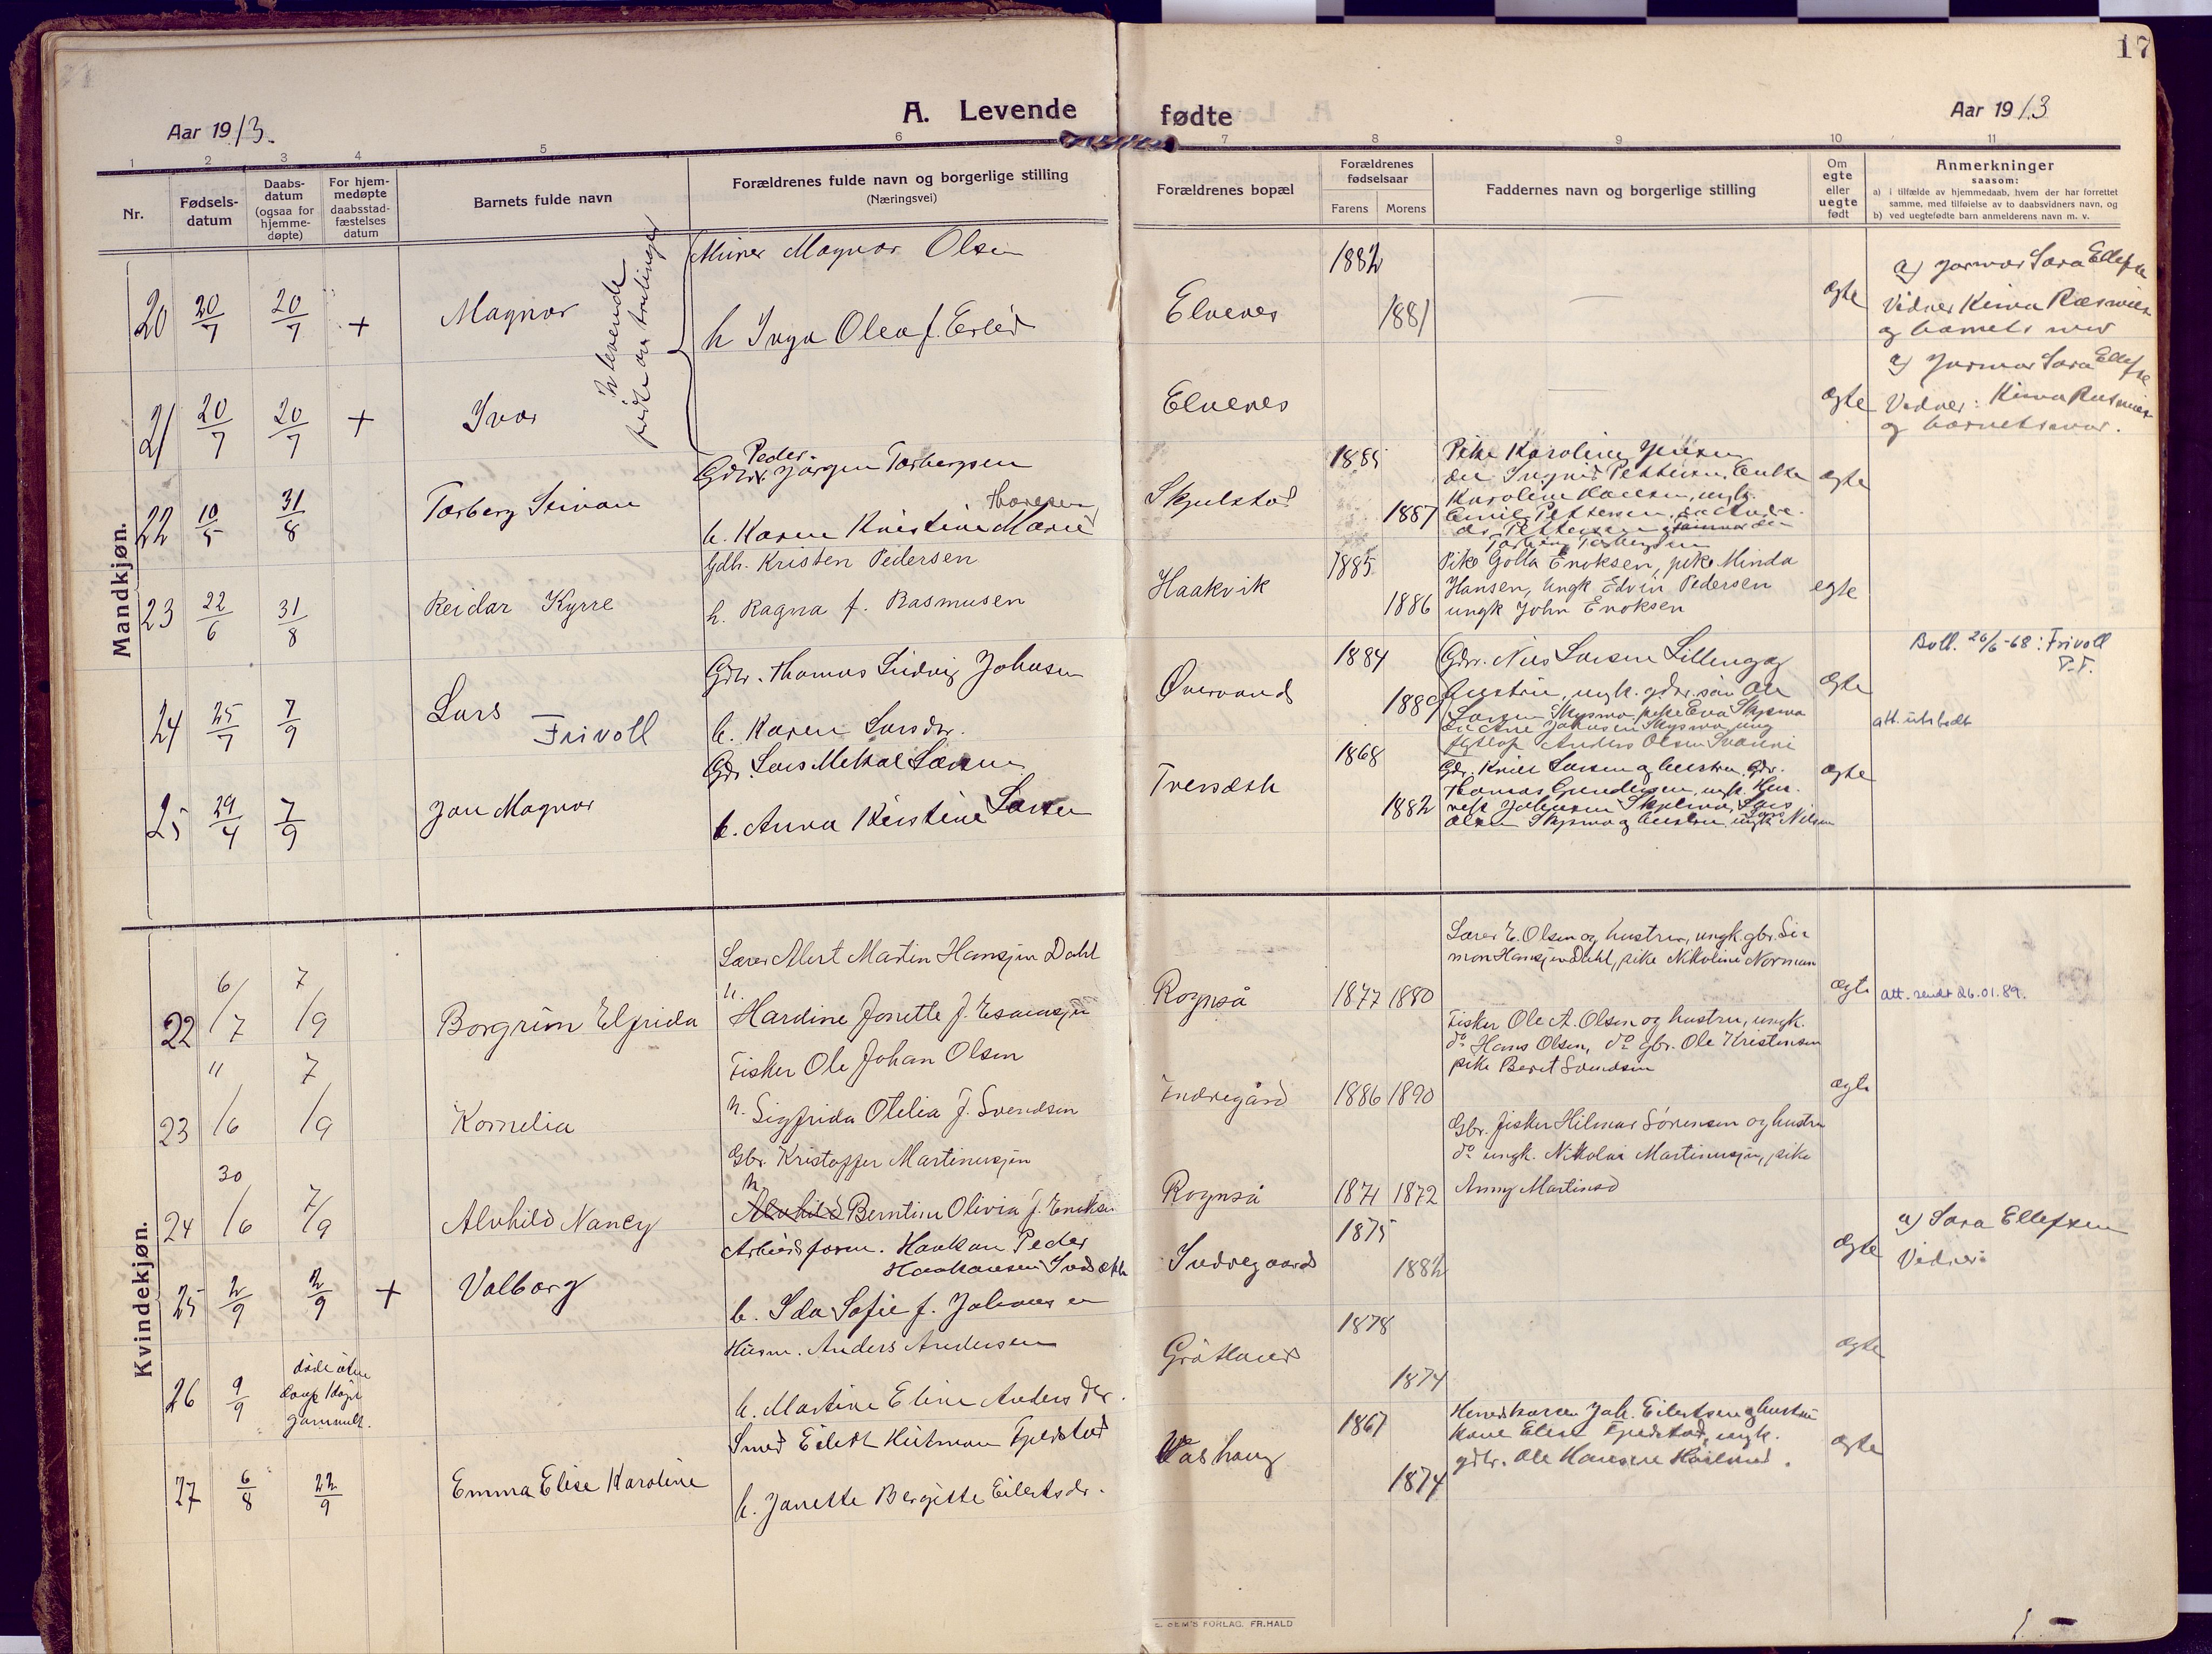 17
A. Levende fødte
Aar 1913.
Aar 1913
1 2 3 4 5 6 7 8 9 10 11
Nr.
Fødsels-
datum
Daabs-
datum
(ogsaa for
hjemme-
døpte)
For hjem-
medøpte
daabsstad-
fæstelses
datum
Barnets fulde navn
Forældrenes fulde navn og borgerlige stilling
(Næringsvei)
Forældrenes bopæl
Forældrenes
fødselsaar
Farens Morens
Faddernes navn og borgerlige stilling
Om
egte
eller
uegte
født
Anmerkninger
saasom:
a) i tilfælde av hjemmedaab, hvem der har forrettet
samme, med tilføielse av to daabsvidners navn, og
b) ved uegtefødte barn anmelderens navn m. v.
Mandkjøn.
Miner Magnor Olsen
1882
a) Jormor Sara Ellefse
20 20/7 20/7 + Magnor
2 levende
født av trilinger
h Inga Olea f.
Elvenes 1881 — egte
Vidner
og barnets mor
a) Jormor Sara Ellefse
21 20/7 20/7 + Ivar
Elvenes — egte
Vidner:
og barnets mor.
Peder
Gdbr. Jørgen Torbergsen
1885
Pike Karoline Jensen
22 10/5 31/8 Torberg
h. Karen Kristine Marie
Skjulstad 1887 egte
do Ingrid Pettersen, Enke
Karoline Hansen, ungk.
Emil Pettersen,
Gdb. Kristen Pedersen
1885
Pike Golla Enoksen, pike Minda
23 22/6 31/8 Reidar Kyrre
h. Ragna f. Rasmusen
Haakvik 1886 egte
Hansen, Ungk Edvin Pedersen
ungk John Enoksen
Gdbr. Thomas Ludvig Johnsen
1884
Gdbr. Nils Larsen Lilleng og
Bull. 26/6-68: Frivoll
P.T.
24 25/7 7/9 Lars
Frivoll
h. Karen Larsdr.
Øvervand 1889 egte
hustru, ungk. gdbr.søn Ole
Larsen Skysmo, pike Eva Skysmo
Anders Olsen
att. utstedt
Gdr. Lars Mekal Larsen
1868
Gdr. Knut Larsen og hustru, Gdr.
25 29/4 7/9 Jon Magnor
h. Anna Kristine Larsen
Tversæth 1882 egte
Thomas Gundersen, ungk.
Olsen Skysmo og hustru, ungk Lars Nilsen
Kvindekjøn.
Lærer Alert Martin Hansjen Dahl
Lærer E. Olsen og hustru, ungk. gbr. Si-
mon Hansjen Dahl, pike Nikoline Norman
22 6/7 7/9 Borgrun Elfrida
h. Hardine Jonette f. Esaiassen
Rognså 1877 1880 ægte
att. sendt 26.01.89.
Fisker Ole Johan Olsen
Fisker Ole A. Olsen og hustru, ungk.
do Hans Olsen, do gbr. Ole Kristensen
pike Berit Svendsen
23 11/6 7/9 Kornelia
h. Sigfrida Otelia f. Svendsen
Indregård 1886 1890 ægte
Gbr. Kristoffer Martinussen
Gbr. fisker Hilmar Sørensen og hustru
do ungk. Nikolai Martinussen, pike
24 30/6 7/9 Alvhild Nancy
h. Alvhild Berntine Olivia f. Enoksen
Rognså 1871 1872
Anny Martinsd
Arbeidsform. Haakon Peder
Haakonsen
1875
a) Sara Ellefsen
25 2/9 2/9 + Valborg
h. Ida Sofie f. Johansen
Indregaard 1882 egte
Vidner:
Husm. Anders Andersen
1878
26 9/9 døde uten
daap 1 døgn
gammelt.
h. Martine Eline Andersdtr.
Gråtland 1874 egte
Smed Eilert Hitman Fjeldstad
1867
Herredskasser Joh. Eilertsen og hustru
27 6/8 22/9 Emma Elise Karoline
h. Janette Bergitte Eilertsdr.
Vashaug 1874 egte
Kone Elise Fjeldstad, ungk.
gdbr. Ole Hansen
SEM'S FORLAG. FR.HALD